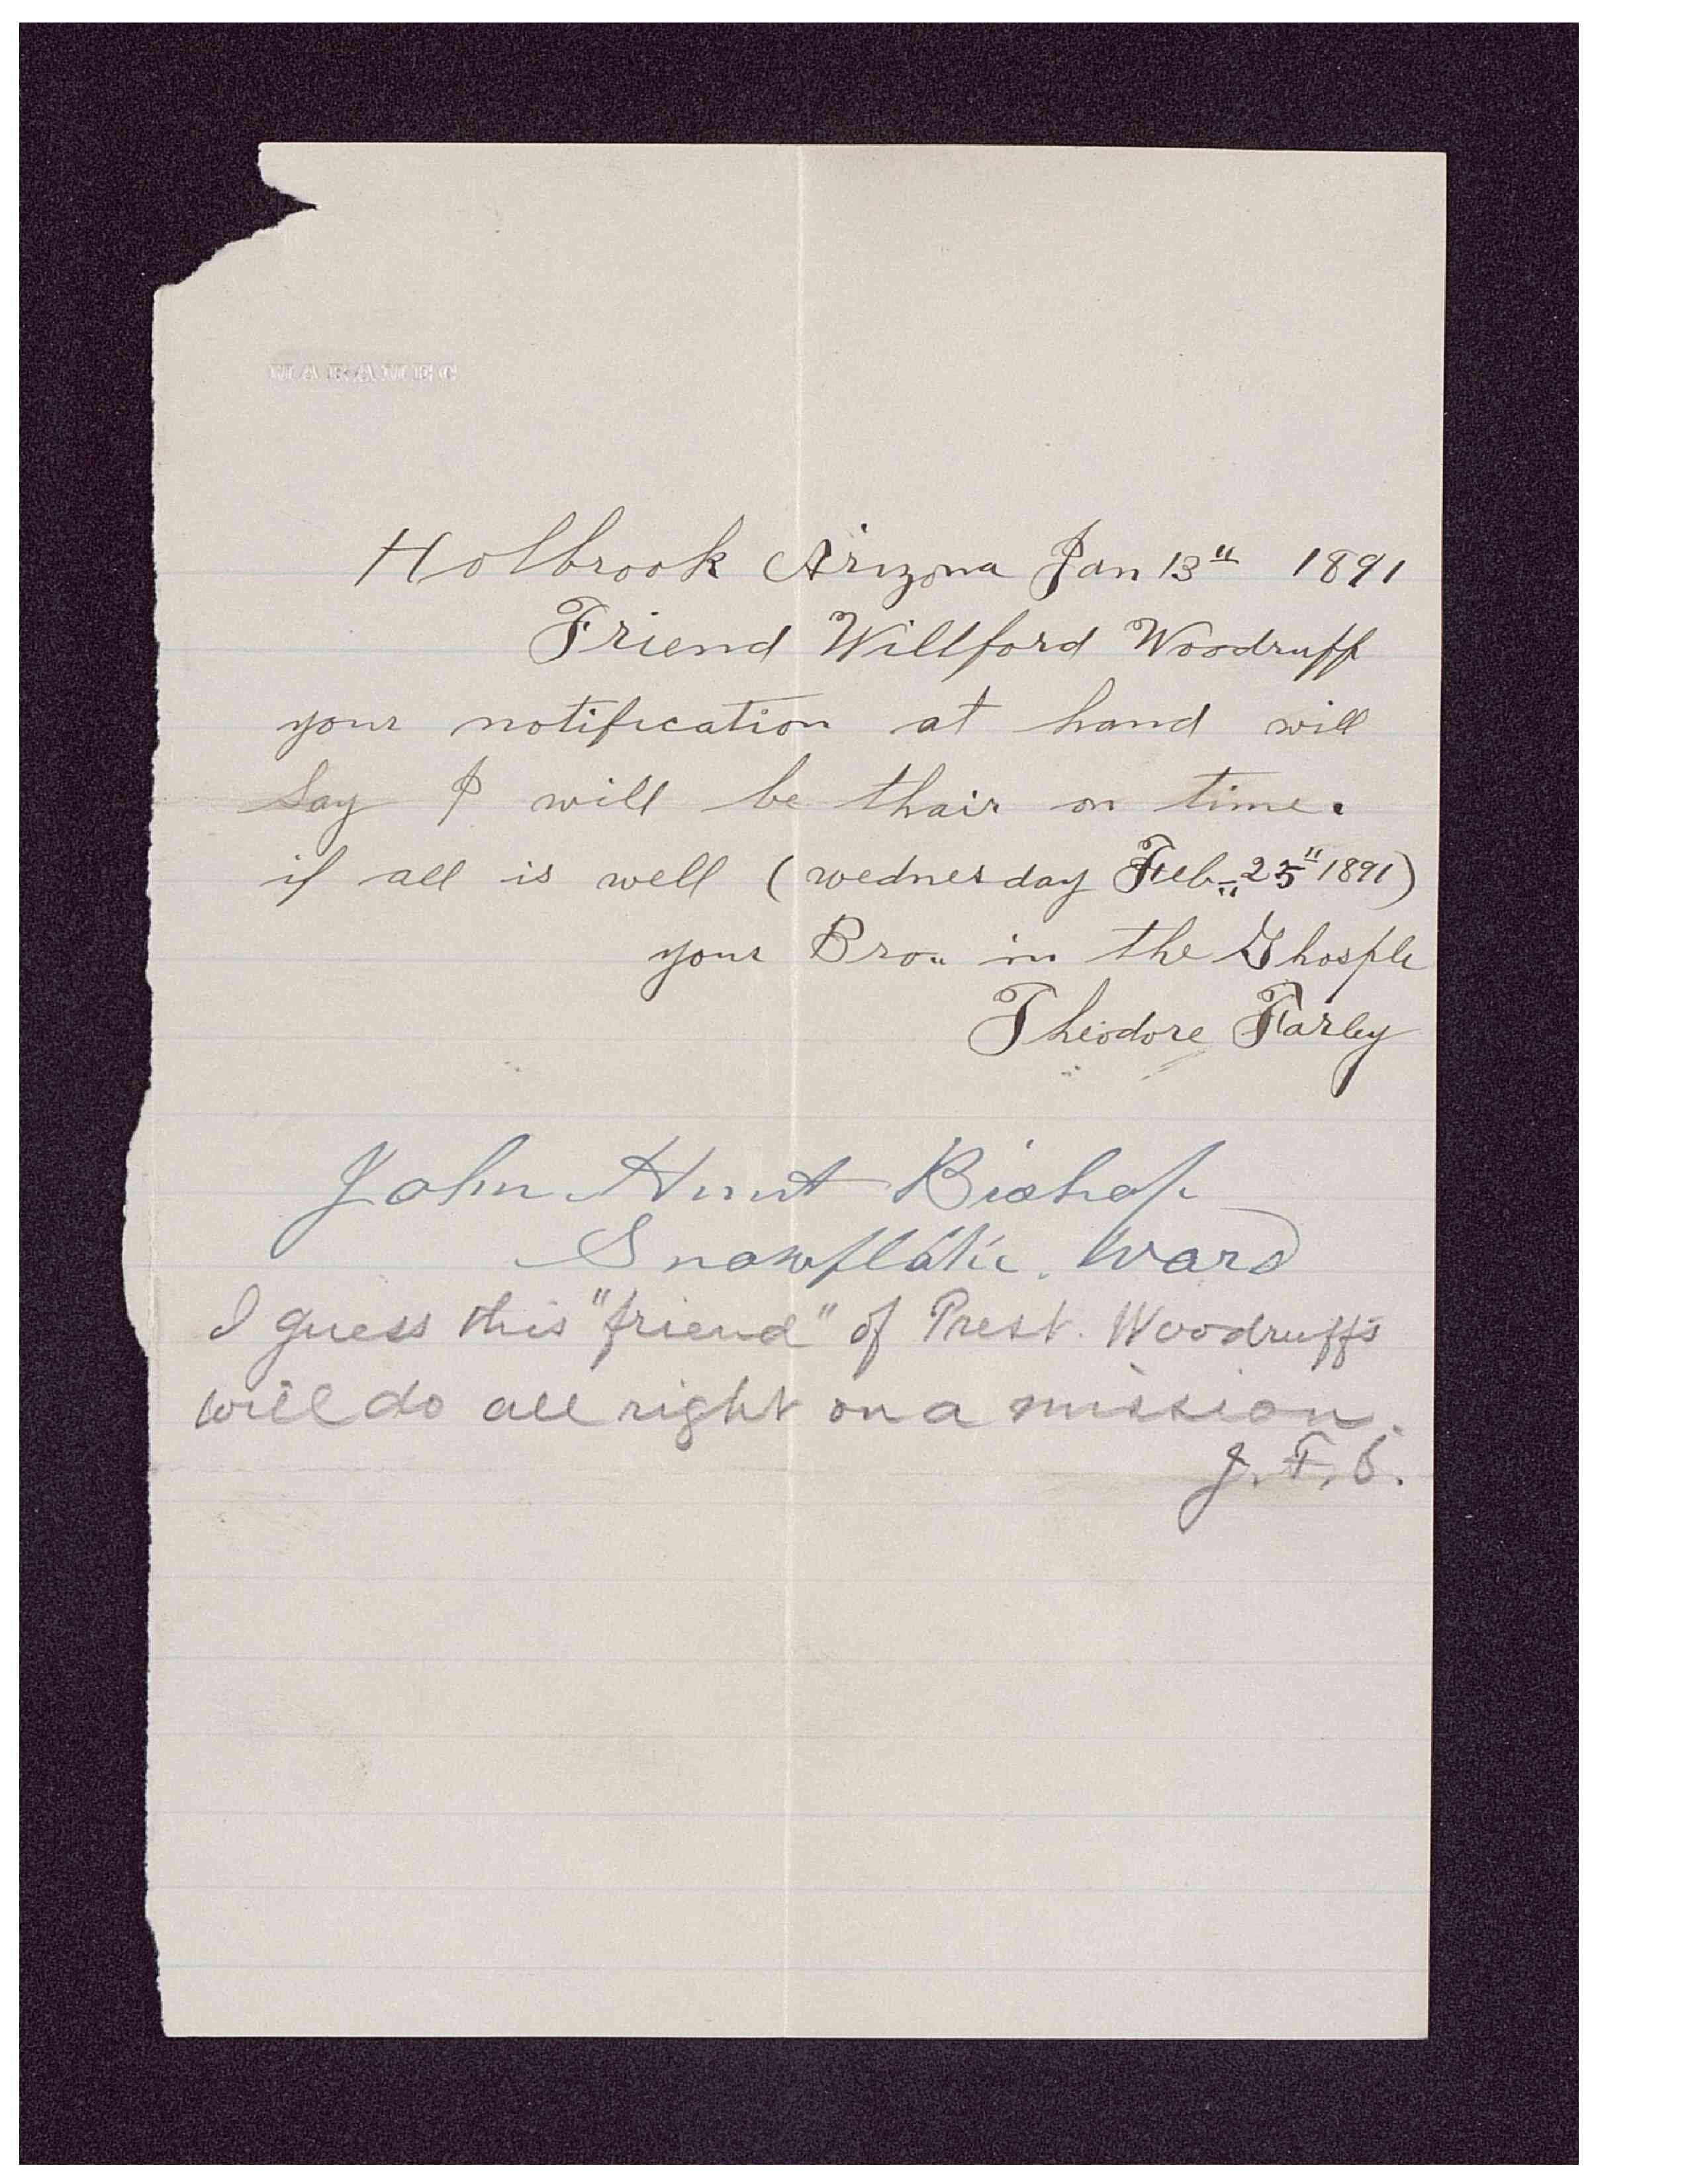 MARAMEC
Holbrook Arizona Jan 13" 1891
Friend Willford Woodruff
your notification at hand will
Say I will be thair on time.
if all is well (wednesday Feb" 25" 1891)
your Bro" in the Ghosple
Theodore Farley
John Hunt Bishop
Snowflake. Ward
I guess this "friend" of Prest. Woodruff's
will do all right on a mission.
J. F. S.